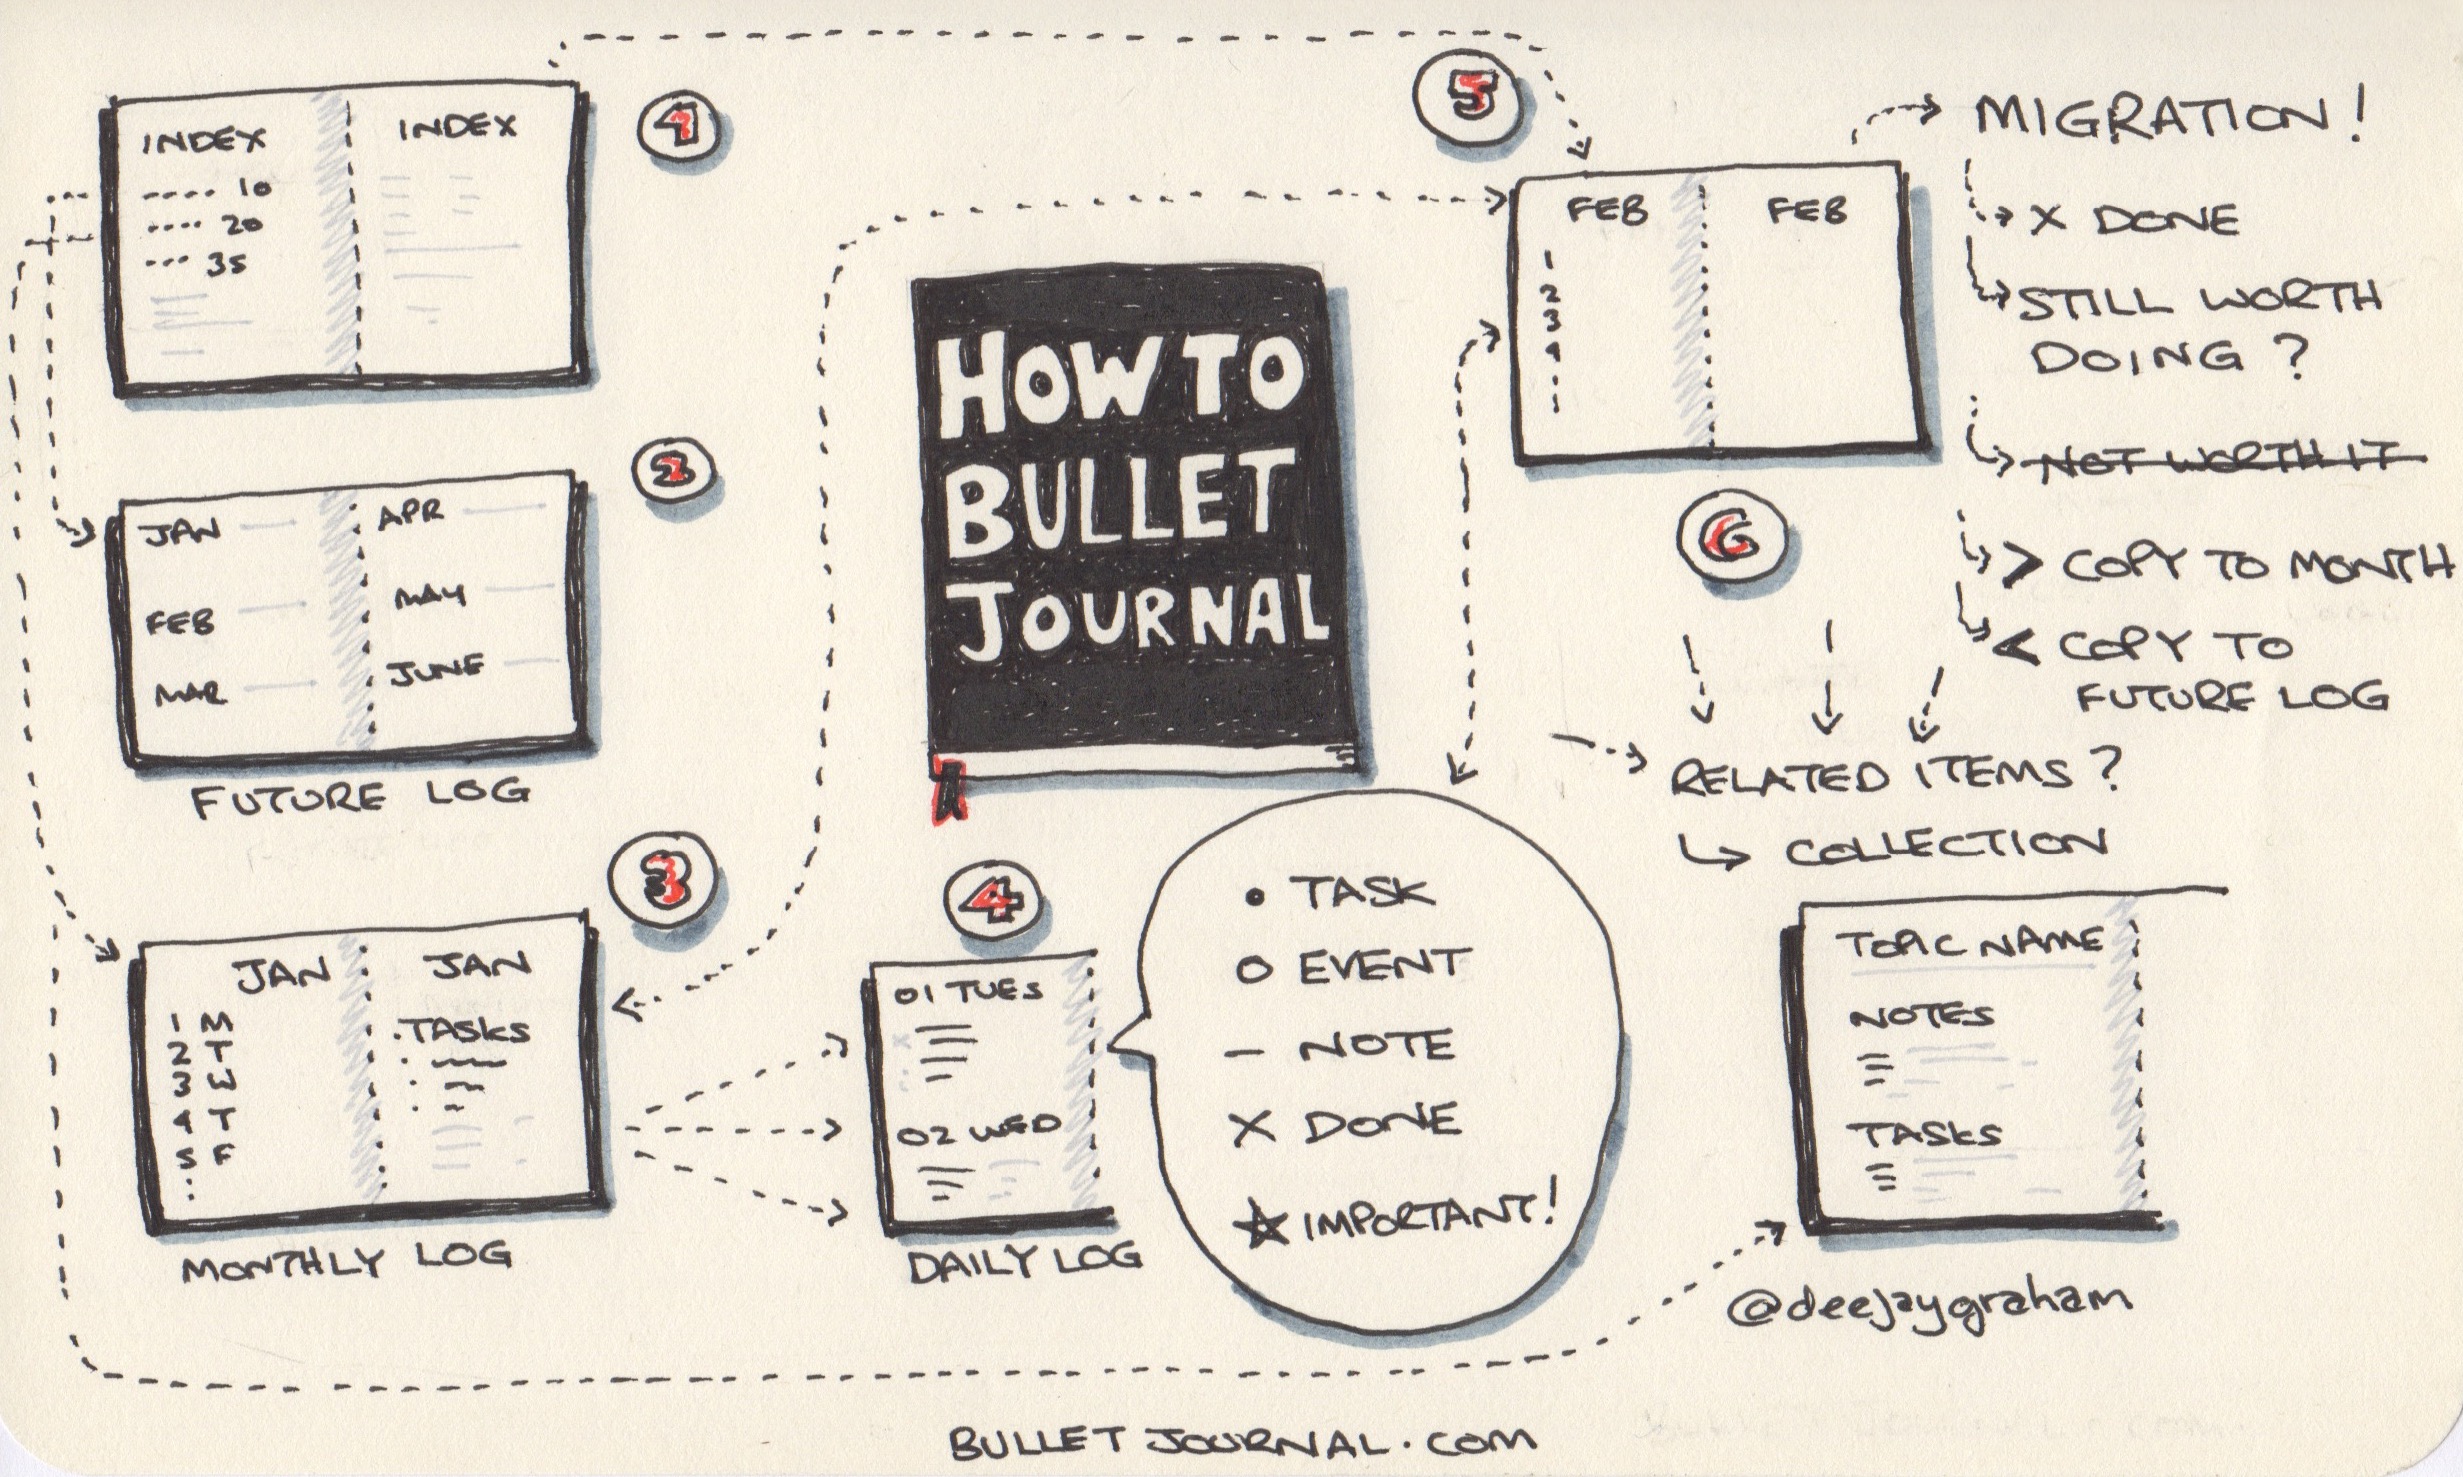 1
INDEX
---- 10
---- 20
--- 35
INDEX
2
JAN
FEB
MAR
APR
MAY
JUNE
FUTURE LOG
3
JAN
1 M
2 T
3 W
4 T
5 F
JAN
. TASKS
MONTHLY LOG
HOW TO
BULLET
JOURNAL
4
01 TUES
02 WED
DAILY LOG
• TASK
O EVENT
– NOTE
X DONE
☆ IMPORTANT!
5
FEB
1
2
3
4
FEB
MIGRATION!
X DONE
STILL WORTH
DOING?
NOT WORTH IT
> COPY TO MONTH
< COPY TO
FUTURE LOG
6
RELATED ITEMS?
↳ COLLECTION
TOPIC NAME
NOTES
TASKS
@deejaygraham
BULLET JOURNAL.COM